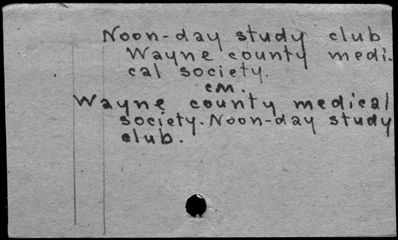 Noon-day study club
Wayne county medi-
cal society.
cM.
Wayne county medical
society. Noon-day study
club.